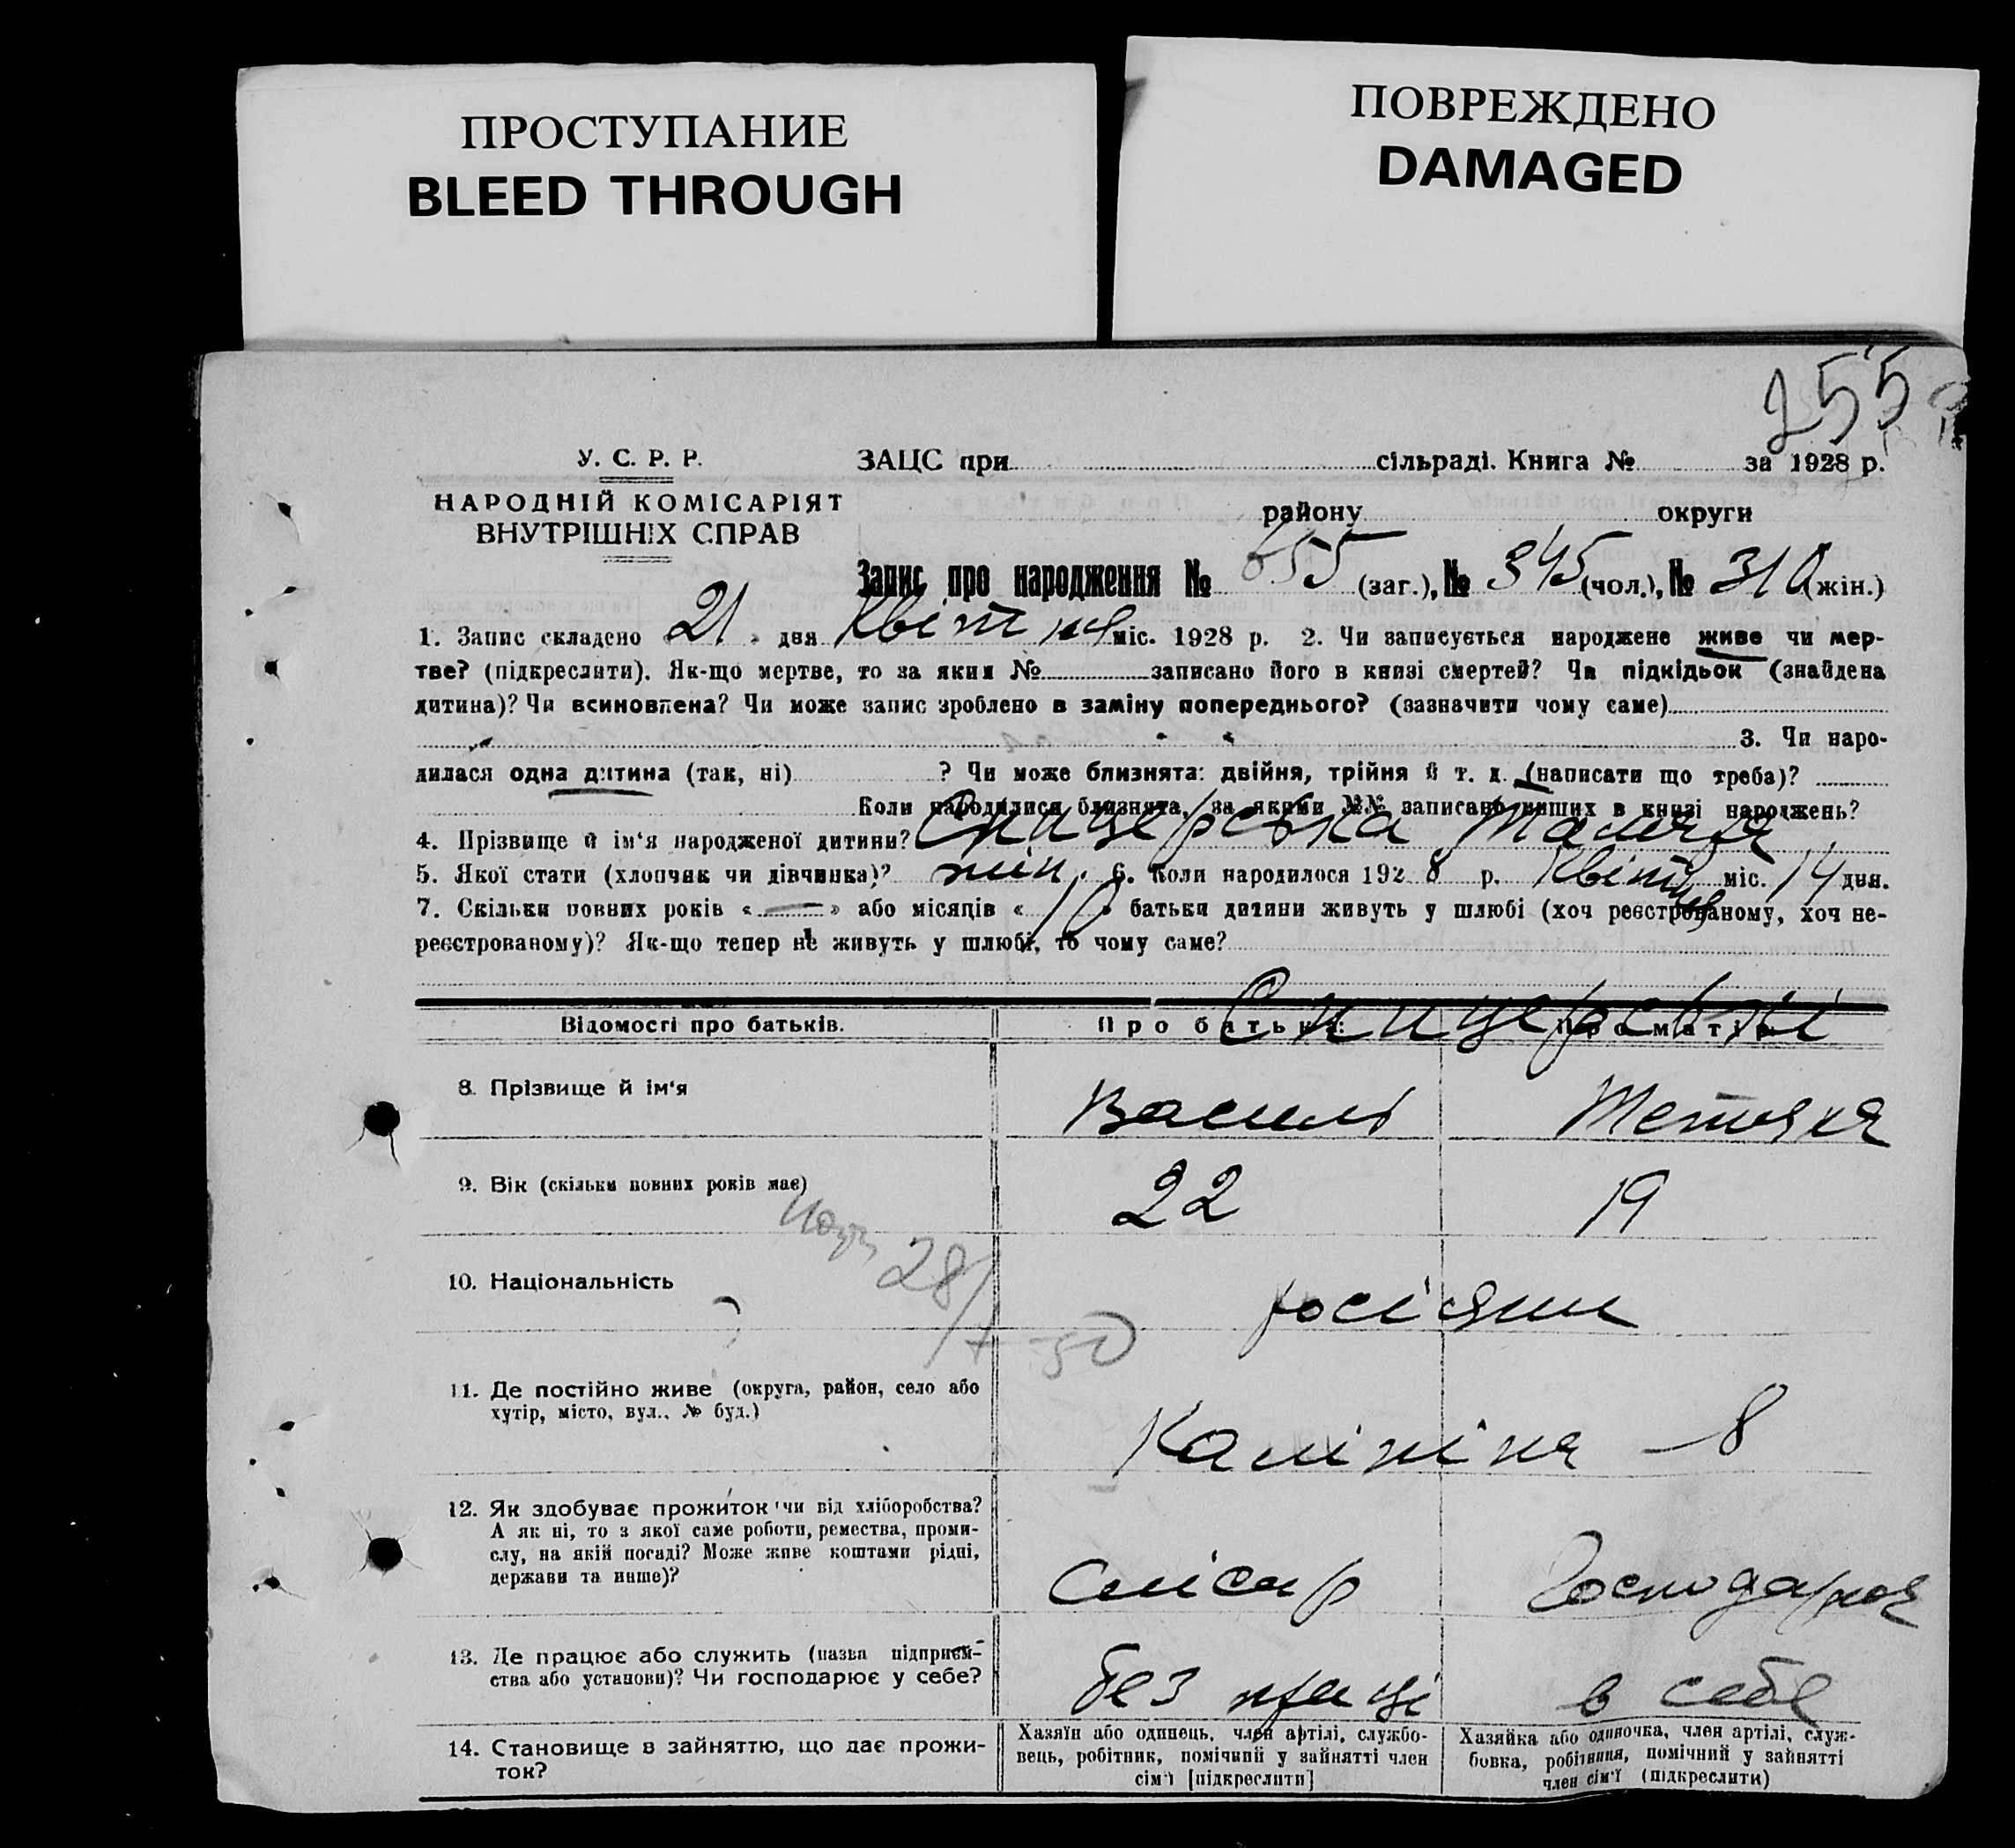 ПРОСТУПАНИЕ
BLEED THROUGH
ПОВРЕЖДЕНО
DAMAGED
255
У. С. Р. Р.
НАРОДНІЙ КОМІСАРІЯТ
ВНУТРІШНІХ СПРАВ
ЗАЦС при сільраді. Книга № за 1928 р.
району округи
Запис про народження № 655 (заг.), № 345 (чол.), № 310 (жін.)
1. Запис складено 21 » дня Квітня міс. 1928 р. 2. Чи записується народжене живе чи мер-
тве? (підкреслити). Як-що мертве, то за яким № записано його в книзі смертей? Чи підкідьок (знайдена
дитина)? Чи всиновлена? Чи може запис зроблено в заміну попереднього? (зазначити чому саме)
3. Чи наро-
дилася одна дитина (так, ні) ? Чи може близнята: двійня, трійня й т. д. (написати що треба)?
Коли народилися близнята, за якими №№ записано инших в книзі народжень?
4. Прізвище й ім'я народженої дитини? Спицерська
5. Якої стати (хлопчик чи дівчинка)? жін. 6. Коли народилося 1928 р. Квітня міс. 14 дня.
7. Скільки повних років « — » або місяців « 10 » батьки дитини живуть у шлюбі (хоч реєстрованому, хоч не-
реєстрованому)? Як-що тепер не живуть у шлюбі, то чому саме?
Відомості про батьків. Про батька: Про матір:
Спицерські
8. Прізвище й ім'я Василь Тетяна
9. Вік (скільки повних років має) 22 19
28/
10. Національність росіяни
50
11. Де постійно живе (округа, район, село або
хутір, місто, вул., № буд.)
Калініна — 8
12. Як здобуває прожиток чи від хліборобства?
А як ні, то з якої саме роботи, ремества, проми-
слу, на якій посаді? Може живе коштами рідні,
держави та инше)?
Слісар Господарює
13. Де працює або служить (назва підприєм-
ства або установи)? Чи господарює у себе?
без праці в себе
14. Становище в зайняттю, що дає прожи-
ток?
Хазяїн або одинець, член артілі, службо-
вець, робітник, помічний у зайнятті член
сім'ї [підкреслити]
Хазяйка або одиночка, член артілі, служ-
бовка, робітниця, помічний у зайнятті
член сім'ї (підкреслити)